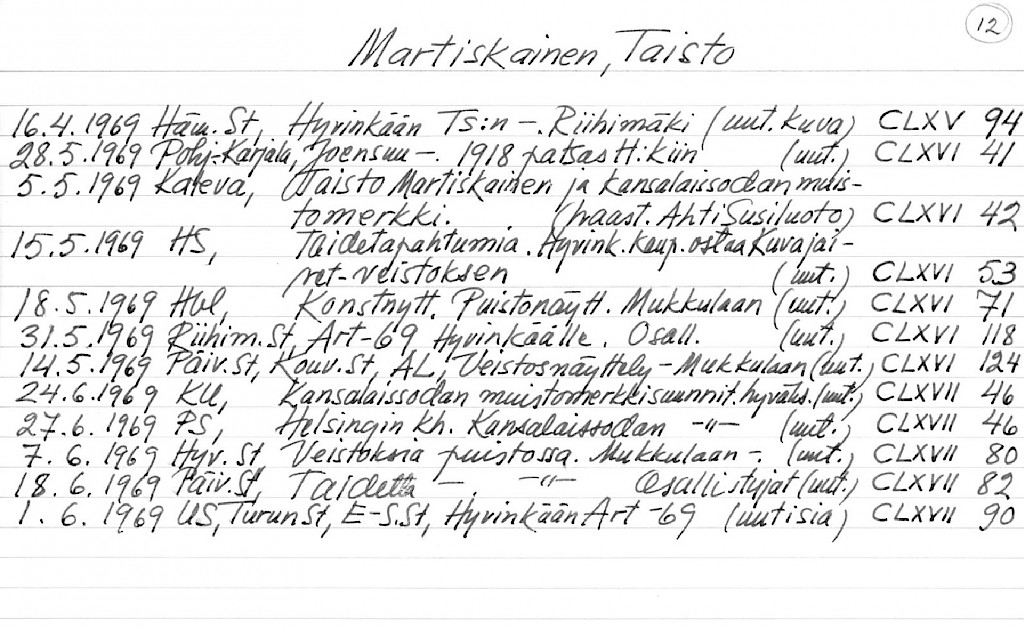 12
Martiskainen, Taisto
16.4.1969 Häm. St, Hyvinkään TS:n –. Riihimäki (uut. kuva) CLXV 94
28.5.1969 Pohj-Karjala, Joensuu –. 1918 patsas H:kiin (uut.) CLXVI 41
5.5.1969 Kaleva, Taisto Martiskainen ja kansalaissodan muis-
tomerkki. (haast. Ahti Susiluoto) CLXVI 42
15.5.1969 HS, Taidetapahtumia. Hyvink. kaup. ostaa Kuvajai-
net-veistoksen (uut.) CLXVI 53
18.5.1969 Hbl, Konstnytt. Puistonäytt. Mukkulaan (uut.) CLXVI 71
31.5.1969 Riihim. St, Art-69 Hyvinkäälle. Osall. (uut.) CLXVI 118
14.5.1969 Päiv. St, Kouv. St, AL, Veistosnäyttely – Mukkulaan (uut.) CLXVI 124
24.6.1969 KU, Kansalaissodan muistomerkkisuunnit. hyväks. (uut.) CLXVII 46
27.6.1969 PS, Helsingin kh. Kansalaissodan –"– (uut.) CLXVII 46
7.6.1969 Hyv. St, Veistoksia puistossa. Mukkulaan –. (uut.) CLXVII 80
18.6.1969 Päiv. St, Taidetta –. –"– Osallistujat (uut.) CLXVII 82
1.6.1969 US, Turun St, E-S.St, Hyvinkään Art-69 (uutisia) CLXVII 90